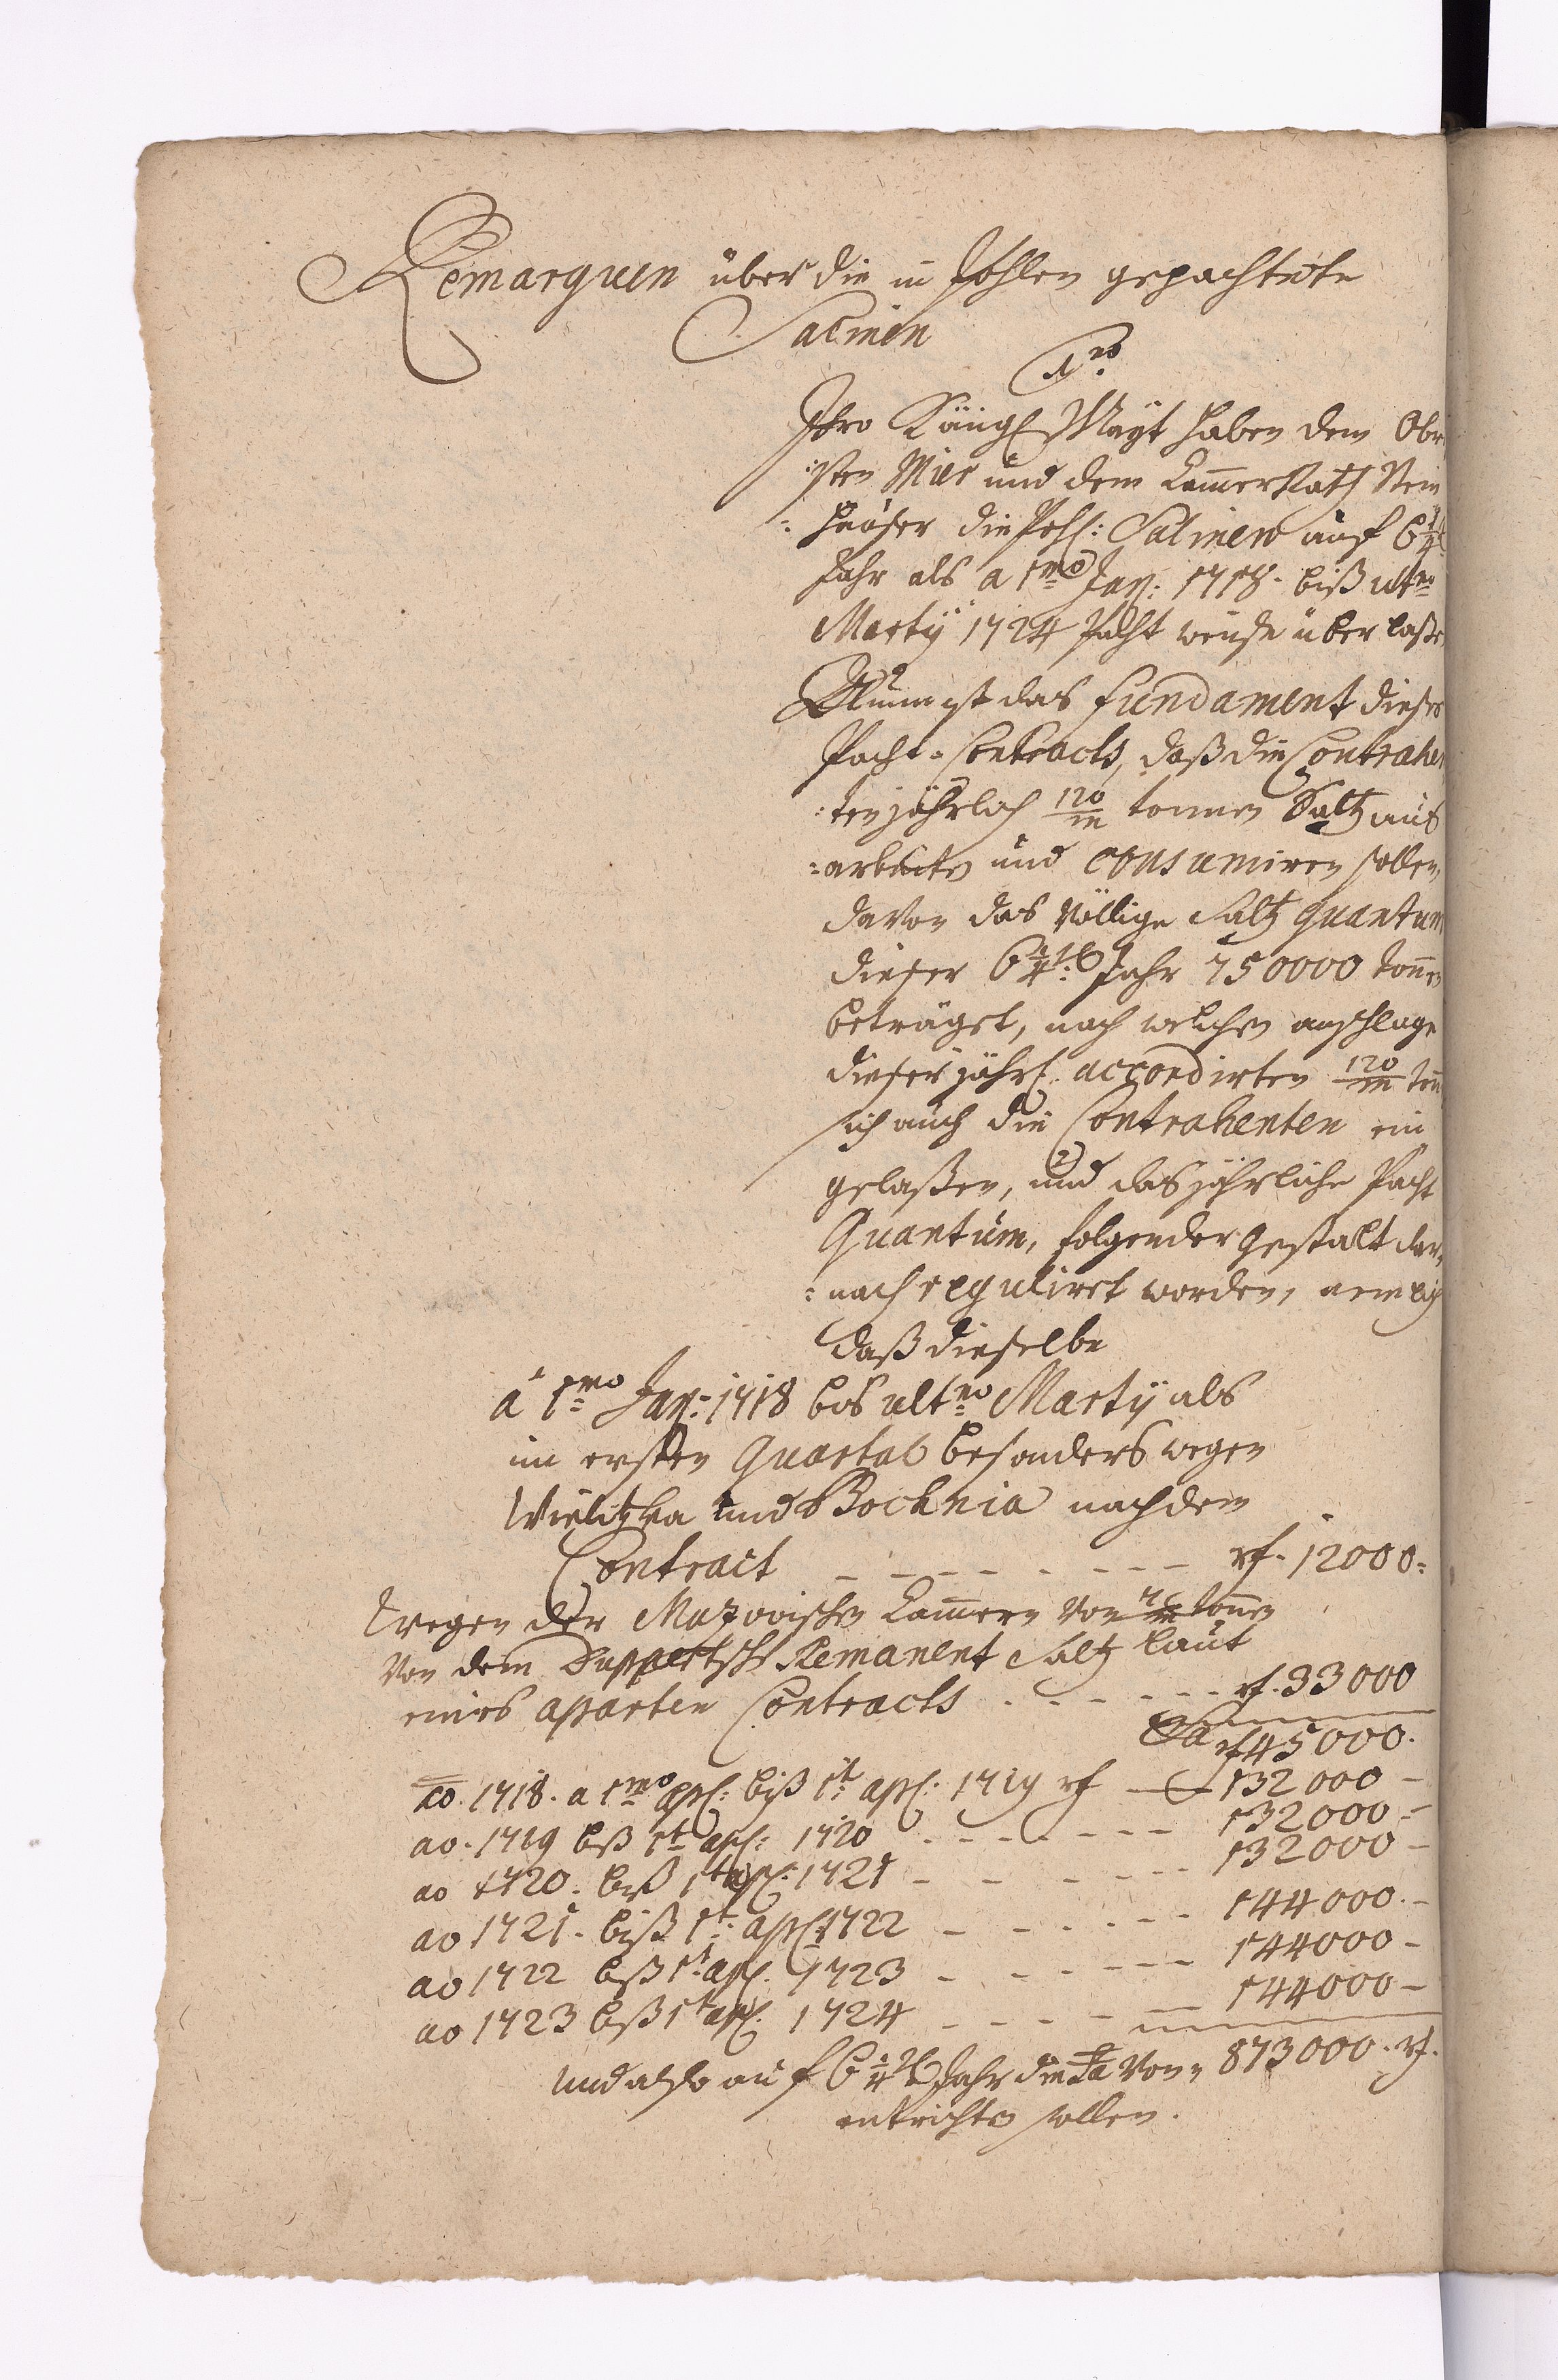 Remarquen über die in Pohlen gepachtete
Salinen
1mo
Ihro Königl Mayt haben dem Obri
:sten Mier und dem Cammer Rath Stein
:häuser die Pohl: Salinen auf 6 1/4
Jahr als a 1mo Jan: 1718. biß ultmo
Martÿ 1724 Pacht weise überlaßen
Nun ist das Fundament dieses
Pacht-Contracts, daß die Contrahen
:ten jährlich 120/m tonnen Saltz aus
:arbeiten und consumiren sollen,
davon das völlige Saltz quantum
dieser 6 1/4tl Jahr 750000 tonnen
beträget, nach welchen anschlage
dieser jährl: accordirten 120/m ton
sich auch die Contrahenten ein
gelaßen, und das jährliche Pacht
Quantum, folgender Gestalt dar,
:nach reguliret worden, nemlich
daß dieselbe
à 1mo Jan: 1718 bis ultmo Martÿ als
im ersten Quartal besonders wegen
Wielitzka und Bochnia nach dem
Contract - - - - - - - - rf. 12000:
Wegen der Mazovischen Cammern von tonnen
von dem Remanent Saltz laut
eines aparten Contracts - - - - - - rf. 33000
Sa rf 45000.
ao. 1718. a 1mo apl: biß 1t apl: 1719 rf — 132000 -
ao. 1719 biß 1t apl: 1720 - - - - - - - 132000 -
ao 1720. biß 1t apl: 1721 - - - - - 132000 -
ao 1721. biß 1t: apl: 1722 - - - - - - 144000. -
ao 1722 biß 1t apl. 1723 - - - - - - 144000 -
ao 1723 biß 1t apl. 1724 - - - - - 144000 -
und also auf 6 1/4tl Jahr die Sa von 873000. rf.
entrichten sollen.